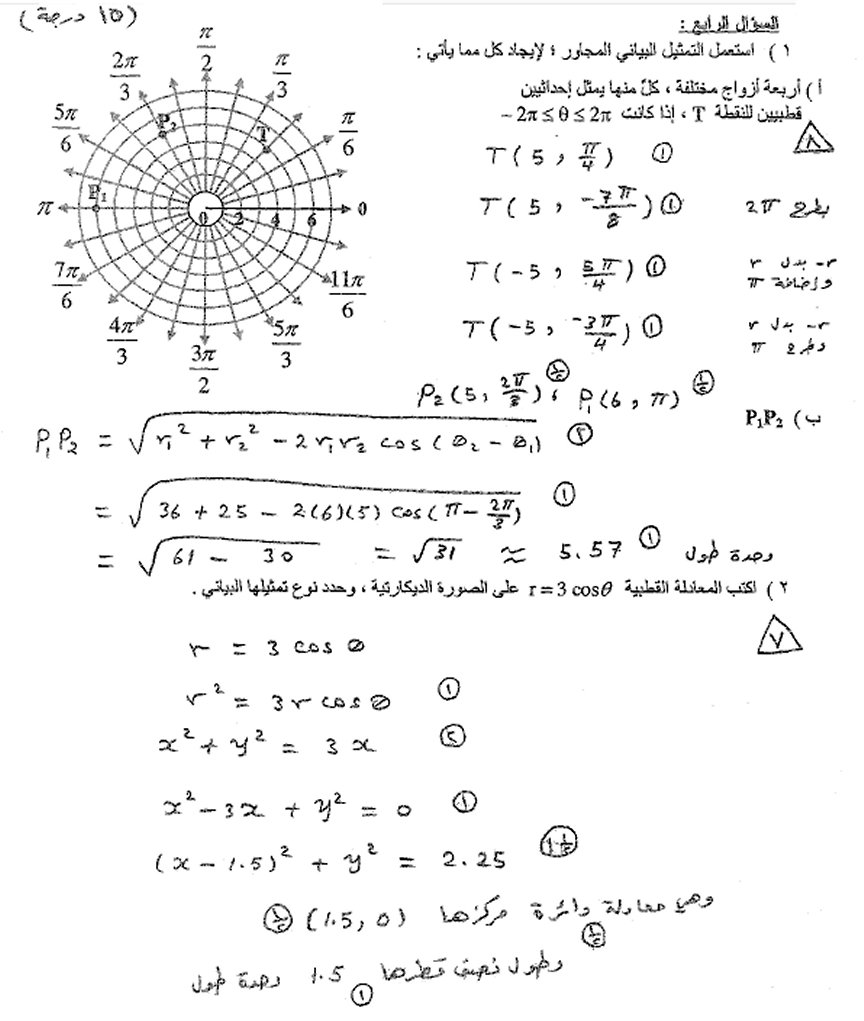 (١٥ درجة)
السؤال الرابع :
١) استعمل التمثيل البياني المجاور ؛ لإيجاد كل مما يأتي :
أ) أربعة أزواج مختلفة ، كلٌ منها يمثل إحداثيين
قطبيين للنقطة T ، إذا كانت −2π ≤ θ ≤ 2π
٨
π/2
2π/3 π/3
5π/6 P₂ T π/6
π P₁ 0 2 4 6 0
7π/6 11π/6
4π/3 5π/3
3π/2
T ( 5 , π/4 ) ①
T ( 5 , -7π/8 ) ① بطرح 2π
T ( -5 , 5π/4 ) ① -r بدل r
وإضافة π
T ( -5 , -3π/4 ) ① -r بدل r
وطرح π
ب) P₁P₂
P₂ ( 5 , 2π/3 ) ½ ، P₁ ( 6 , π ) ½
P₁P₂ = √(r₁² + r₂² − 2 r₁r₂ cos ( θ₂ − θ₁ )) ②
= √(36 + 25 − 2(6)(5) cos ( π − 2π/3 )) ①
= √(61 − 30) = √31 ≈ 5.57 ① وحدة طول
٢) اكتب المعادلة القطبية r = 3 cosθ على الصورة الديكارتية ، وحدد نوع تمثيلها البياني .
٧
r = 3 cos θ
r² = 3 r cos θ ①
x² + y² = 3 x ②
x² − 3x + y² = 0 ①
(x − 1.5)² + y² = 2.25 1½
وهي معادلة دائرة مركزها (1.5 , 0) ½
½
وطول نصف قطرها 1.5 ① وحدة طول